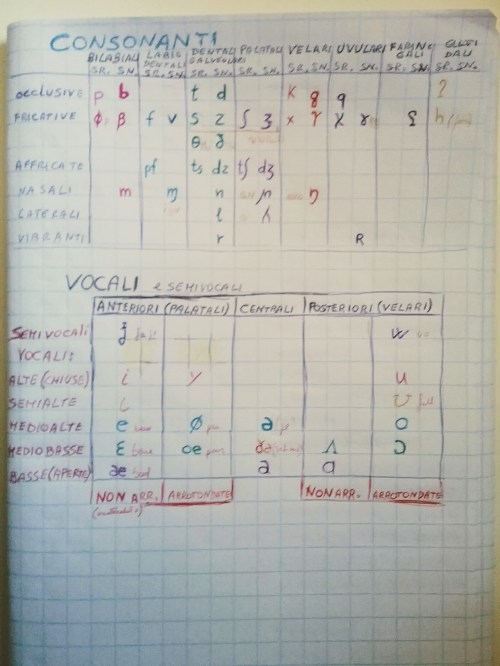 CONSONANTI
BILABIALI LABIO DENTALI DENTALI ALVEOLARI PALATALI VELARI UVULARI FARINGALI GLOTTIDALI
SR. SN. SR. SN. SR. SN. SR. SN. SR. SN. SR. SN. SR. SN. SR. SN.
OCCLUSIVE p b t d k g q ʔ
FRICATIVE ɸ β f v s z ʃ ʒ x ɣ χ ʕ h
θ
AFFRICATE pf ts dz tʃ dʒ
NASALI m ɱ n ɲ ŋ
LATERALI l ʎ
VIBRANTI r R
VOCALI e SEMIVOCALI
ANTERIORI (PALATALI) CENTRALI POSTERIORI (VELARI)
SEMIVOCALI j w
VOCALI:
ALTE (CHIUSE) i y u
SEMIALTE ʊ
MEDIOALTE e ø ə o
MEDIOBASSE ɛ oe ʌ ɔ
BASSE (APERTE) æ a ɑ
NON ARR. ARROTONDATE NON ARR. ARROTONDATE